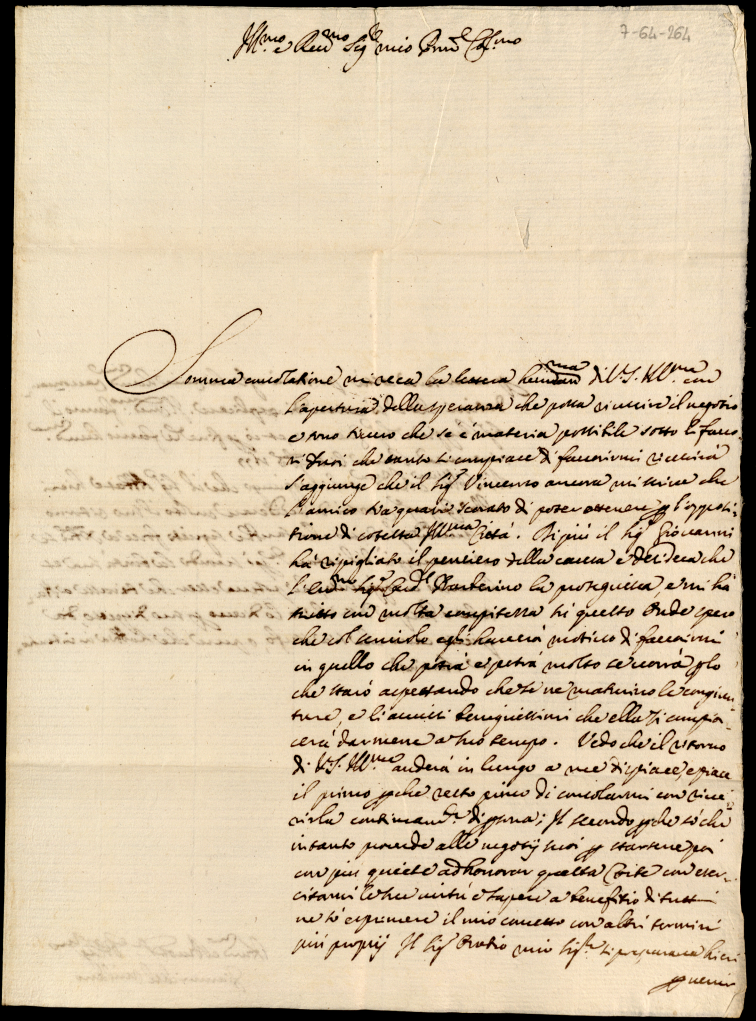 Ill.mo e Reu.mo Sig.re mio
7-64-264
Somma consolatione mi reca la lettera di V.S. Ill.ma con
l'apertura della speranza che possa riuscire il negotio
e sono sicuro che se è materia possibile sotto li fauo-
ri suoi che tanto si compiace di fauorirmi
s'aggiunge che il Sig.r Vincenzo ancora mi scrive che
l'amico sia quasi di poter ottenere l'opposi-
tione di cotesta Ill.ma Città. Di più il Sig.r Giovanni
ha ripigliato il pensiero della causa e desidera che
l'Em.mo Sig.r Card.l Barberino la proseguisca, e mi ha
scritto con molta in questo Onde spero
che col suo motiuo di fauorirmi
in quello che potrà e potrà molto p lo
che starò aspettando che se ne maturino le congiun-
ture, e li auuisi benignissimi che ella si compia-
cerà darmene a suo tempo. Vedo che il ritorno
di V.S. Ill.ma anderà in lungo a me dispiace, e piace
il primo pche resto priuo di consolarmi con riue-
rirla continuam.te di psona; Il secondo pche sò che
intanto prouede alle negotij suoi p starsene poi
con più quiete ad honorar questa Città con eser-
citarui le sue virtù e sapere a benefitio di tutti
ne sò esprimere il mio concetto con altri termini
più proprij Il Sig.r mio Sig.re si preparaua hieri